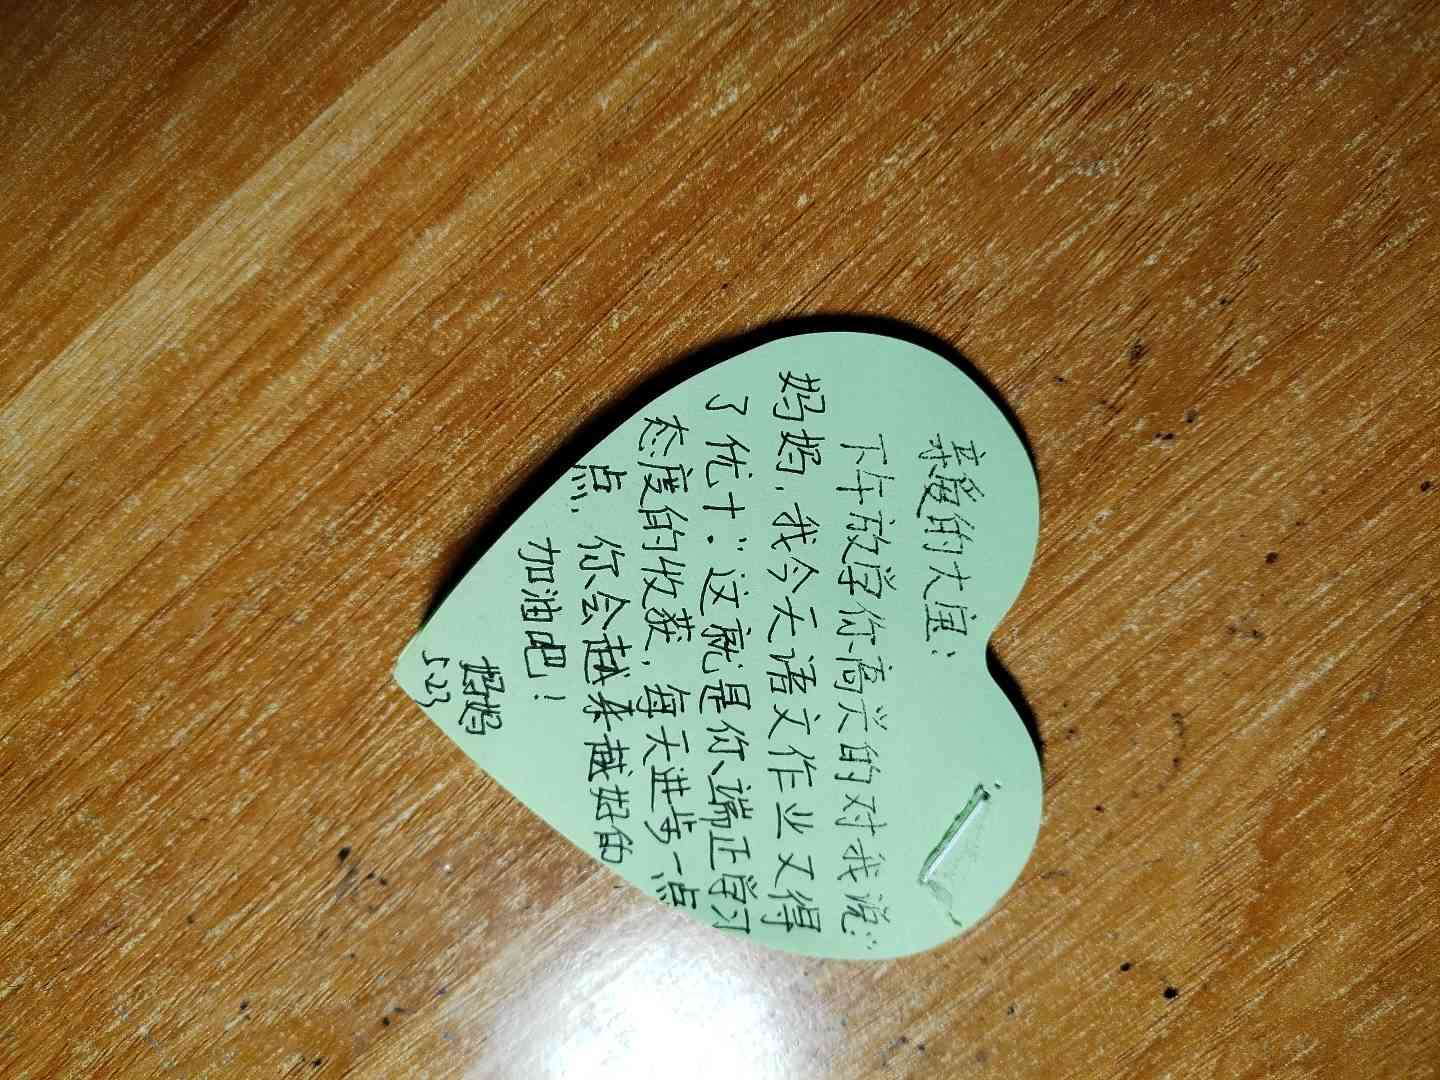 亲爱的大宝：
下午放学你高兴的对我说：“
妈妈，我今天语文作业又得
了优十。”这就是你端正学习
态度的收获，每天进步一点
点，你会越来越好的
加油吧！
妈妈
5.23